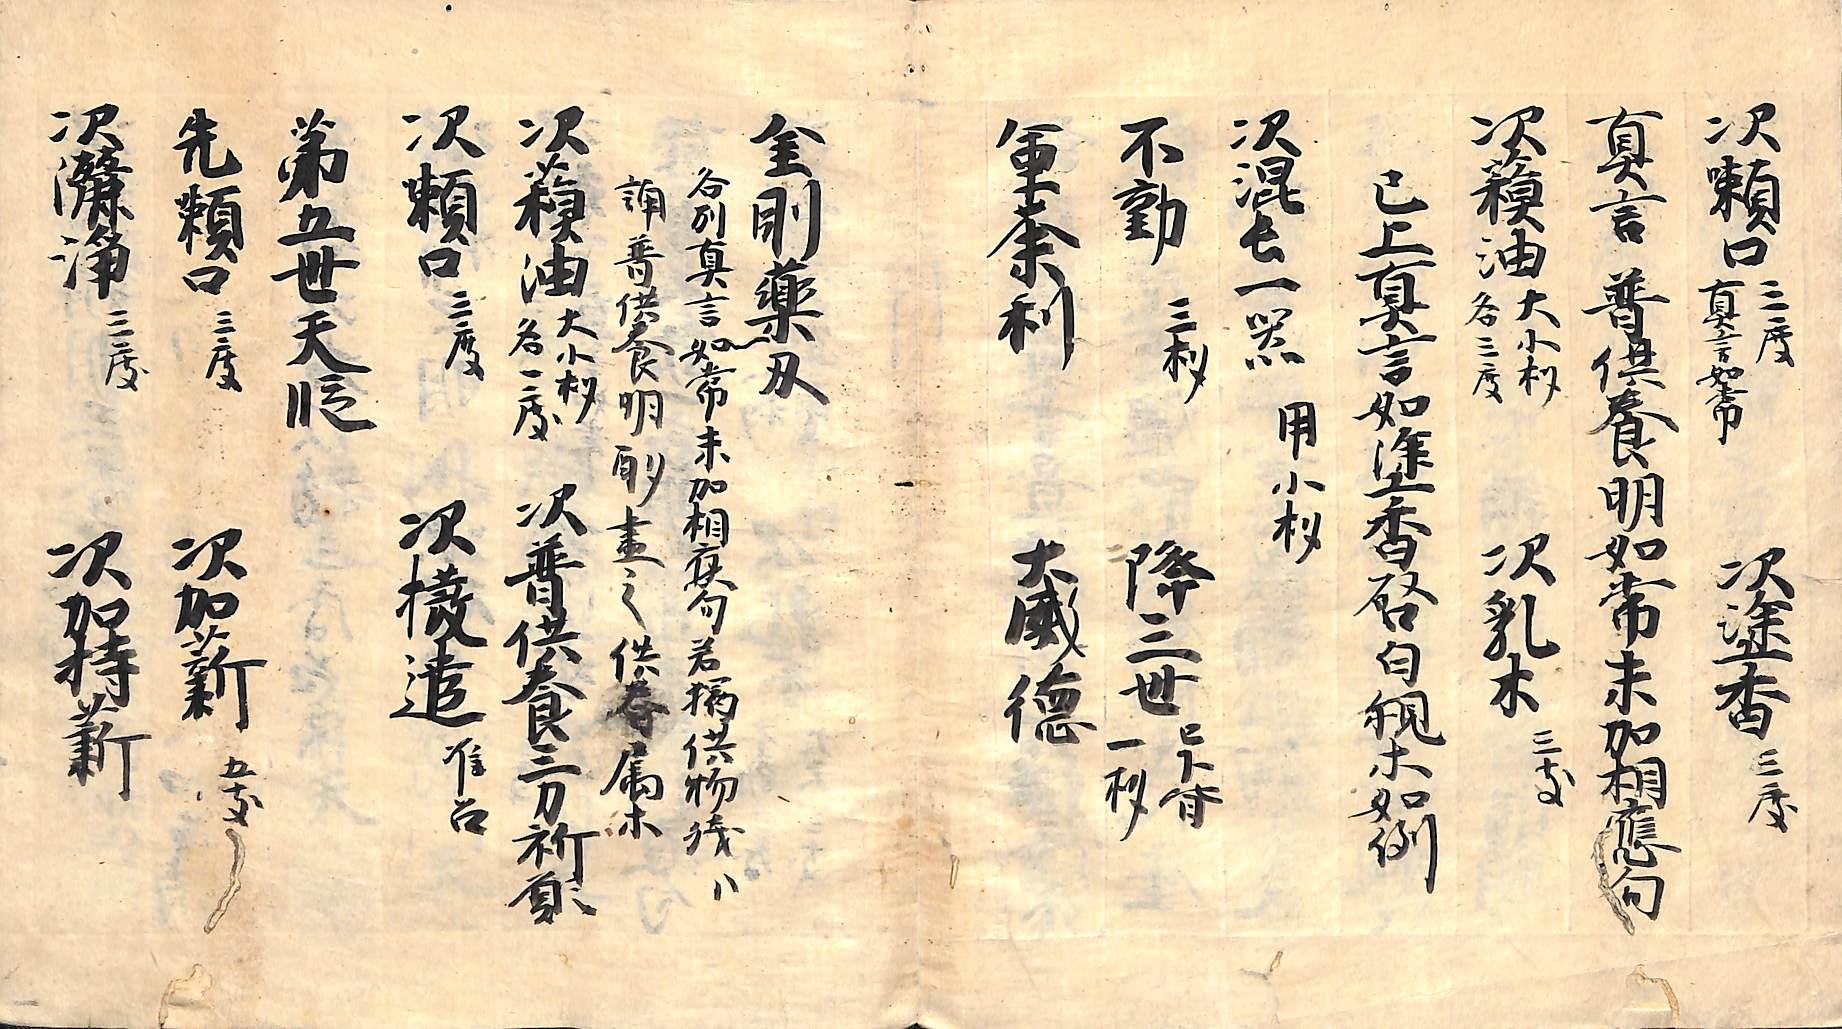 次嗽口 三度 真言如常 次塗香 三度
真言 普供養明如常末加相應句
次蘓油 大小杓 各三度 次乳木 三支
已上真言如塗香啓白観ホ如例
次混屯一器 用小杓
不動 三杓 降三世 已下皆一杓
軍荼利 大威德
金剛藥叉
各列真言如常末加相應句若捅供物残ハ
誦普供養明 尽之供眷属ホ
次蘓油 大小杓 各一度 次普供養三力祈願
次嗽口 三度 次撥遣 准召
第五世天段
先嗽口 三度 次加薪 五支
次灑浄 三度 次加持薪